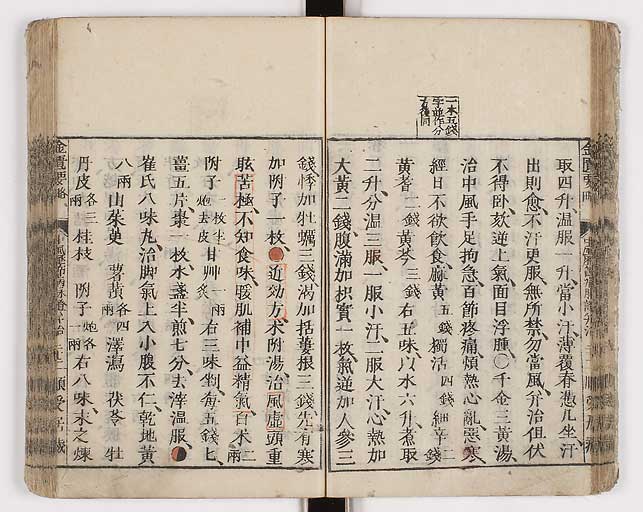 一本五錢
字並作分
五後同
取四升溫服一升當小汗薄覆脊憑几坐汗
出則愈不汗更服無所禁勿當風〇并治但伏
不得臥欬逆上氣面目浮腫〇千金三黃湯
治中風手足拘急百節疼痛煩熱心亂惡寒
經日不欲飲食麻黃五錢獨活四錢細辛二錢
黃耆二錢黃芩三錢右五味以水六升煮取
二升分溫三服一服小汗二服大汗心熱加
大黃二錢腹滿加枳實一枚氣逆加人參三
錢悸加牡蠣三錢渴加栝蔞根三錢先有寒
加附子一枚近効方朮附湯治風虛頭重
眩苦極不知食味暖肌補中益精氣白朮二兩
附子一枚半炮去皮甘艸一兩炙右三味剉每五錢匕
薑五片棗一枚水盞半煎七分去滓溫服
崔氏八味丸治脚氣上入小腹不仁乾地黃
八兩山茱萸 薯蕷各四兩澤瀉 茯苓 牡
丹皮各三兩桂枝 附子炮各一兩右八味末之煉
金匱要略